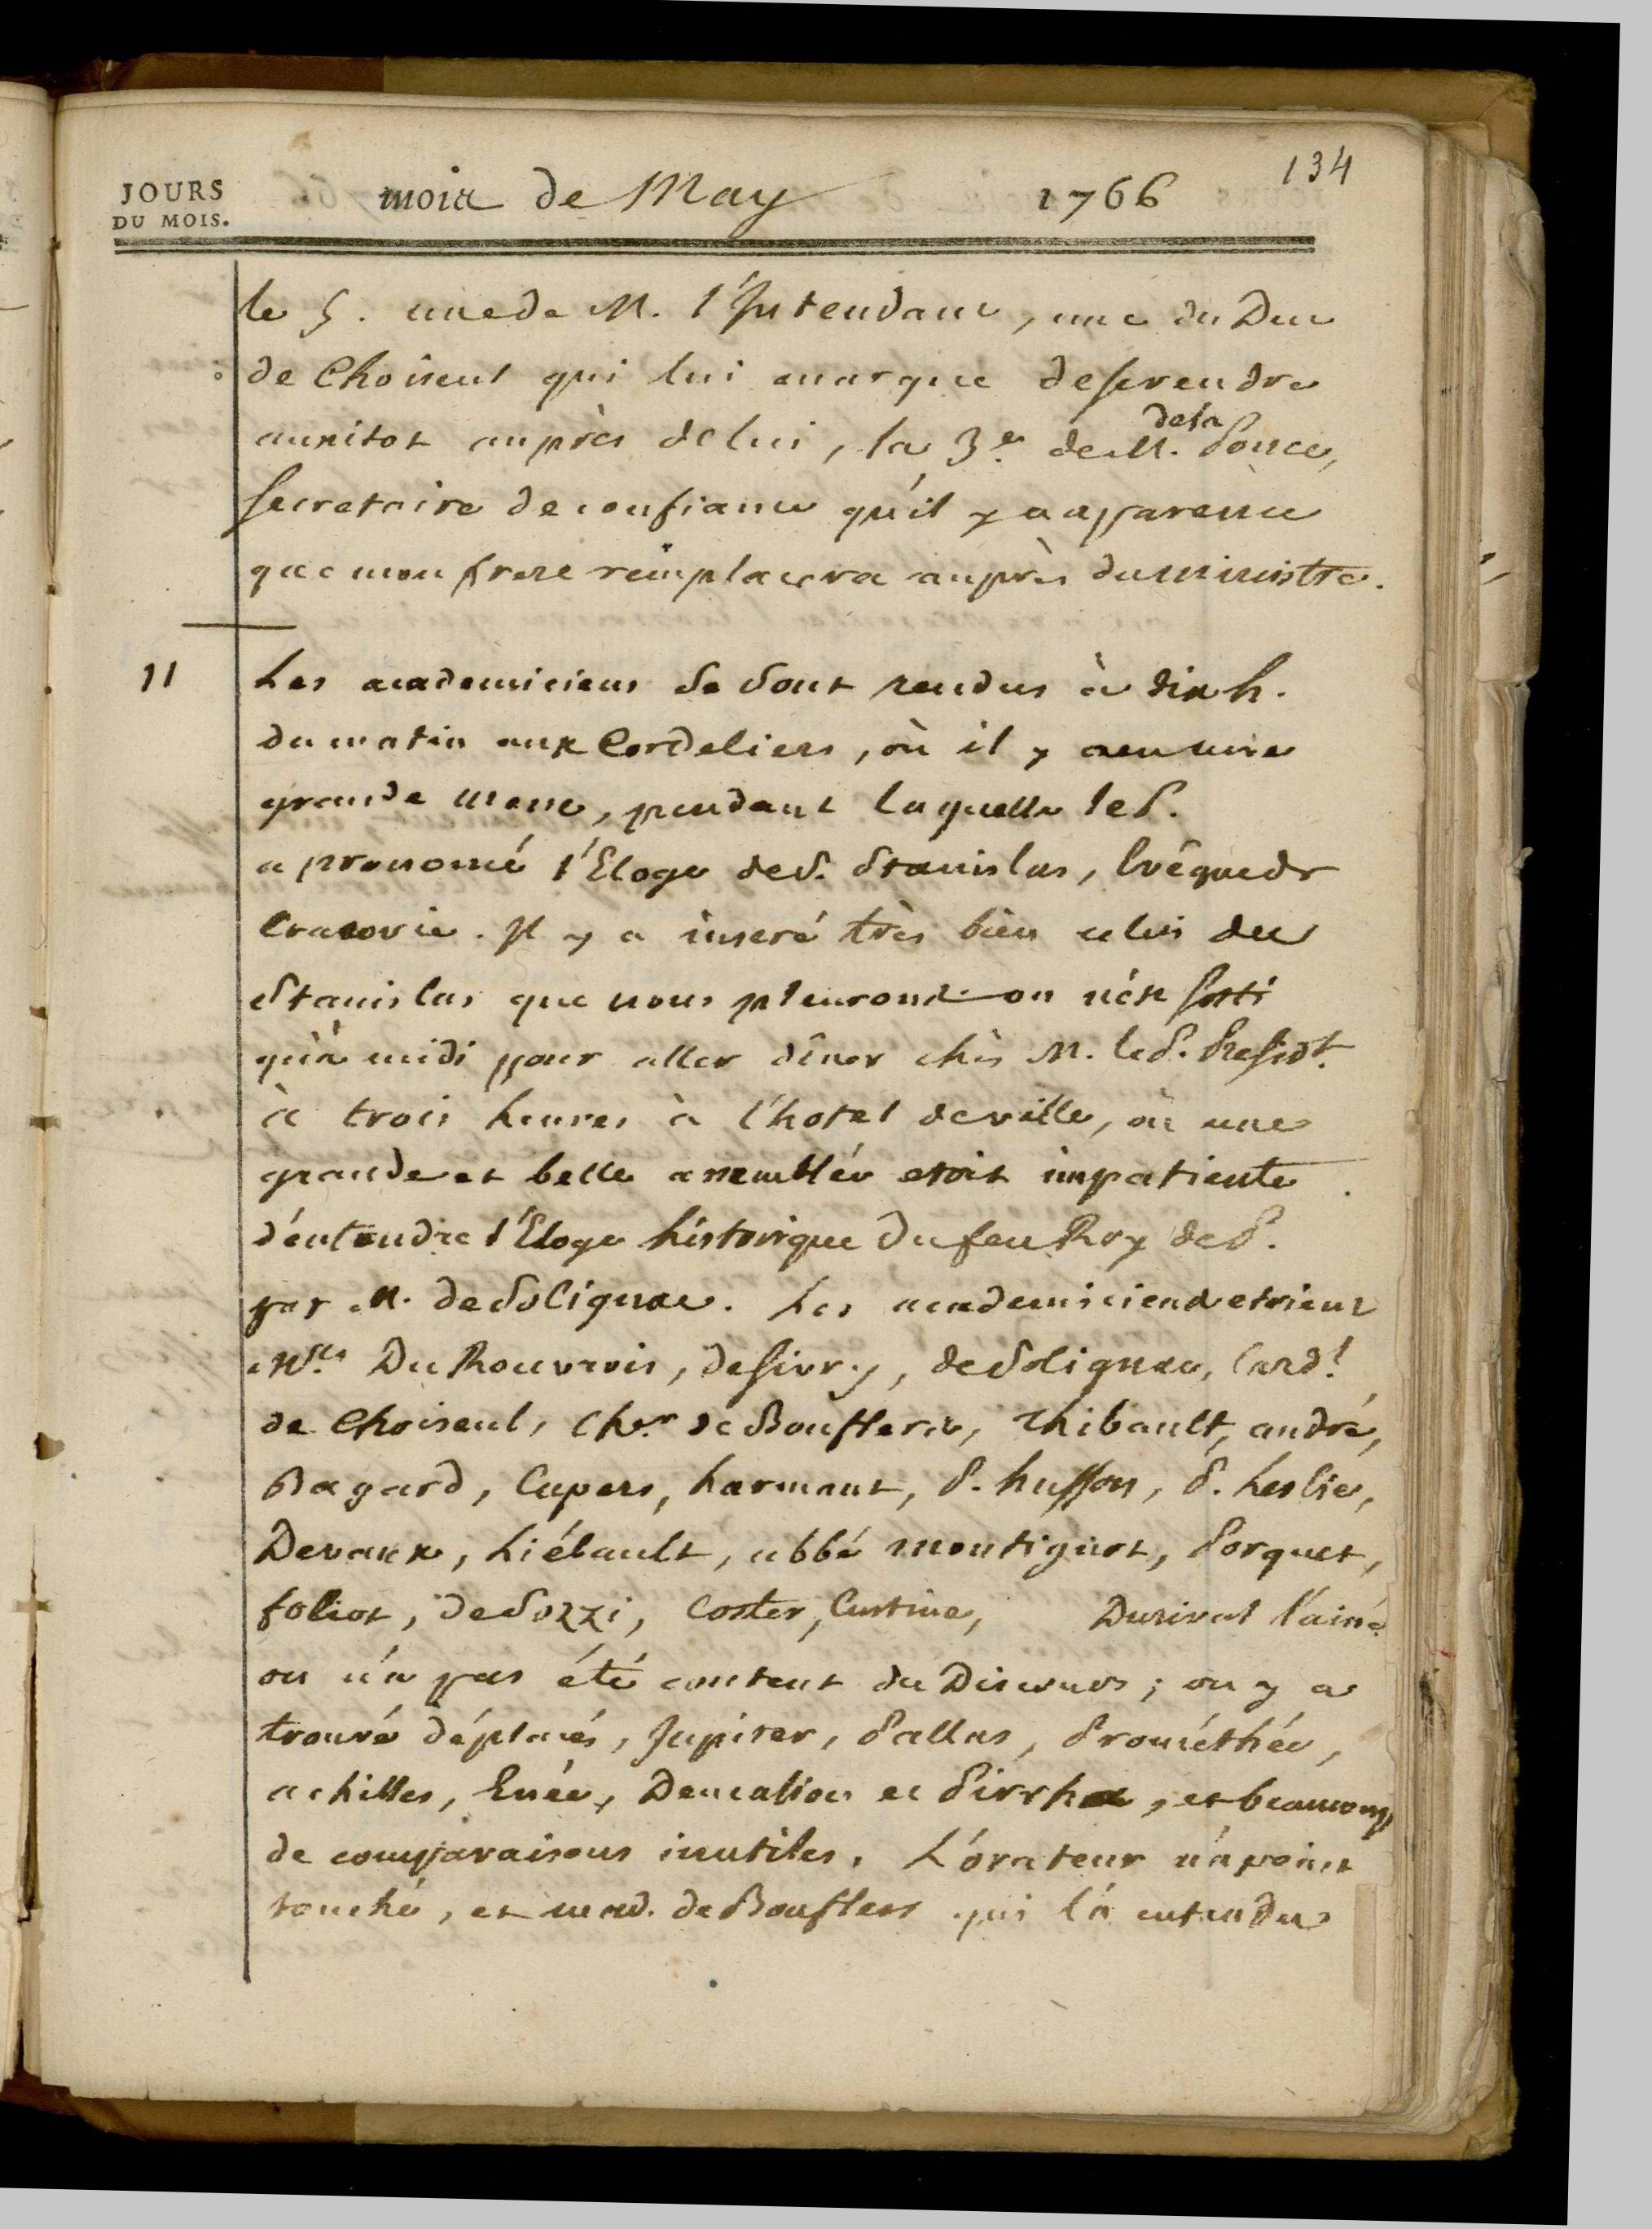 134
JOURS
DU MOIS.
mois de May 1766
le 5. une de M. l'Intendant, une du Duc
de Choiseul qui lui marque de se rendre
aussitot auprès de lui, la 3e. de M. dela Ponce,
secretaire de confiance qu'il y a apparence
que mon frere remplacera auprès du ministre.
11
Les academiciens se sont rendus à dix h.
du matin aux Cordeliers, où il y a eu une
grande messe, pendant laquelle le P.
a prononcé l'Eloge de S. Stanislas, Evêque de
Cracovie. Il y a inseré très bien celui du
Stanislas que nous pleurons. on n'est sorti
qu'à midi pour aller dîner chès M. le P. Presidt.
à trois heures à l'hotel de ville, où une
grande et belle assemblée etoit impatiente
d'entendre l'Eloge historique du feu Roy de P.
par M. de Solignac. Les academiciens etoient
Mrs. Du Rouvrois, de Sivry, de Solignac, Card!
de Choiseul, Cher. de Bouflers, Thibault, andré,
Bagard, Cupers, harmant, P. husson, P. Leslie,
Devaux, Liébault, abbé montignot, Porquet,
foliot, de Sozzi, Coster, Custine, Durival l'ainé
on n'a pas été content du Discours; on y a
trouvé déplacés, Jupiter, Pallas, Prométhée,
achilles, Enée, Deucalion et Pirrha, et beaucoup
de comparaisons inutiles. L'orateur n'a point
touché, et mad. de Bouflers qui l'a entendu